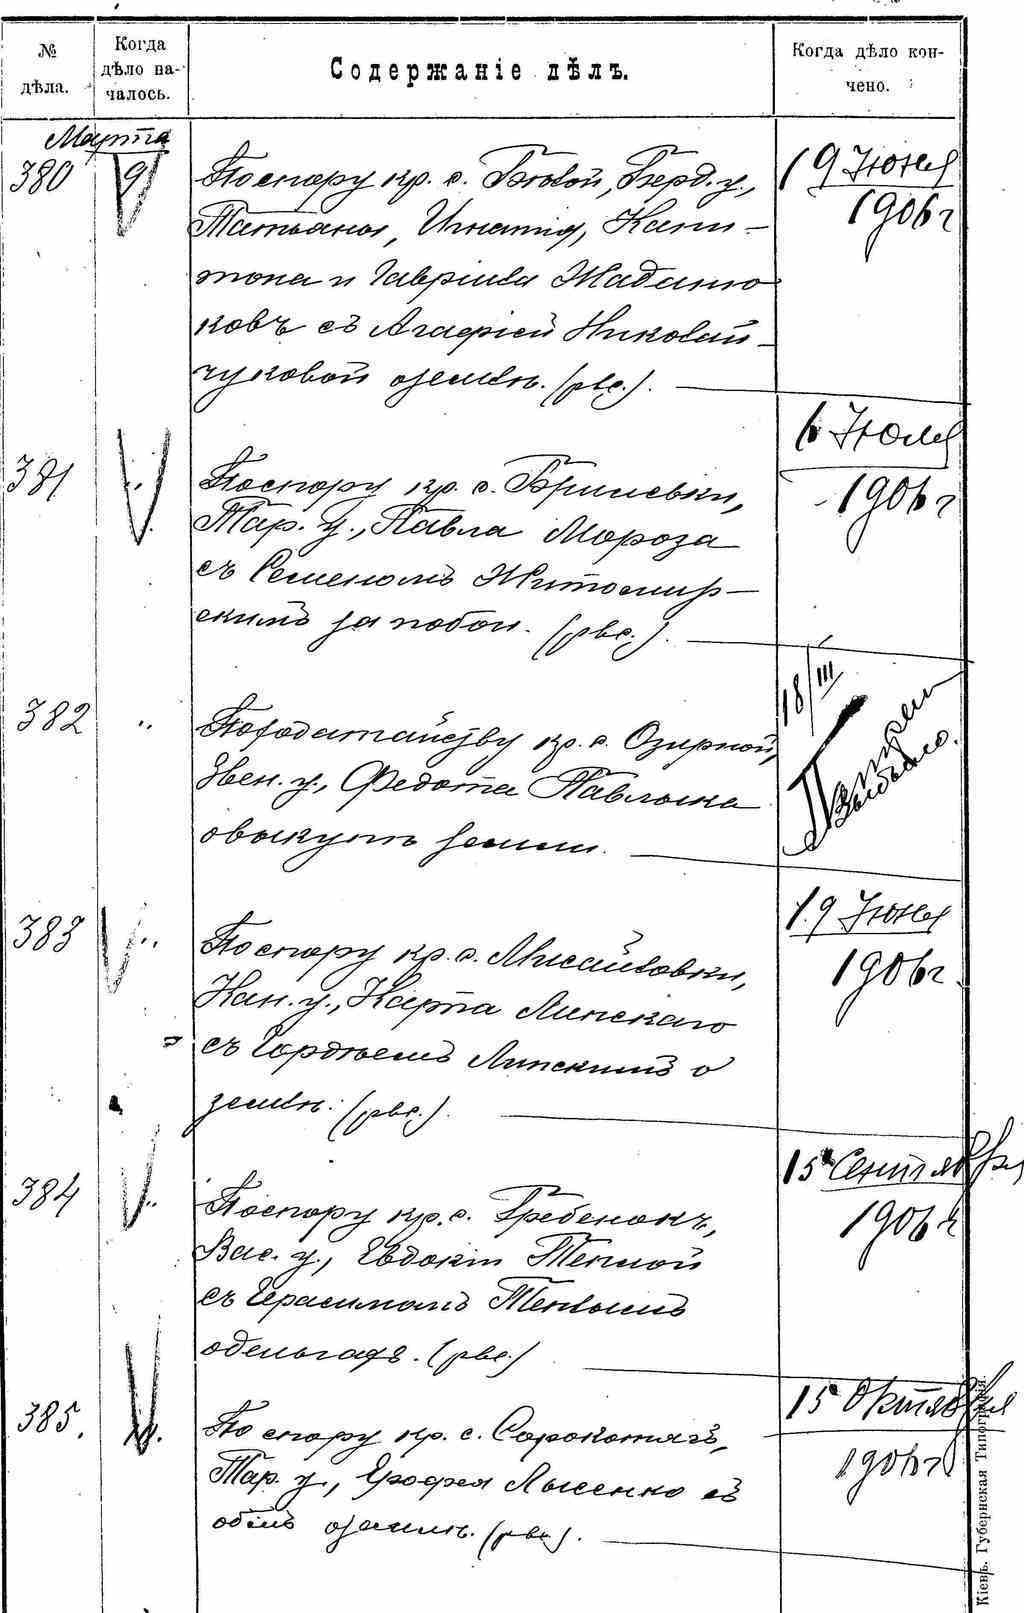 № дѣла.
Когда дѣло началось.
Содержаніе дѣлъ.
Когда дѣло кончено.
Марта
380
9
По спору кр. с. Бѣлой, Берд. у.,
Татьяны, Игнатія, Капи-
тона и Гавріила Жаданю
ковъ съ Агафіей Николай-
чуковой о землѣ. (рвс.).
19 Июня
1906 г
381
"
По спору кр. с. Бришевки,
Тар. у., Павла Мороза
съ Семеномъ Житомир-
скимъ за побои. (рвс.).
6 Июля
1906 г
382
"
По ходатайству кр. с. Озирной,
Звен. у., Федота Павлыка
о выкупѣ земли.
18/III
383
"
По спору кр. с. Мисайловки,
Кан. у., Карпа Липскаго
съ Гордѣемъ Липскимъ о
землѣ. (рвс.).
19 Июня
1906 г.
384
"
По спору кр. с. Гребенокъ,
Вас. у., Евдокіи Теплой
съ Герасимомъ Теплымъ
о деньгахъ. (рвс.)
15 Сентября
1906 г
385.
"
По спору кр. с. Сорокотягъ,
Тар. у., Ерофея Лысенко съ
общ. о землѣ. (рвс.).
15 Октября
1906 г
Кіевъ. Губернская Типографія.